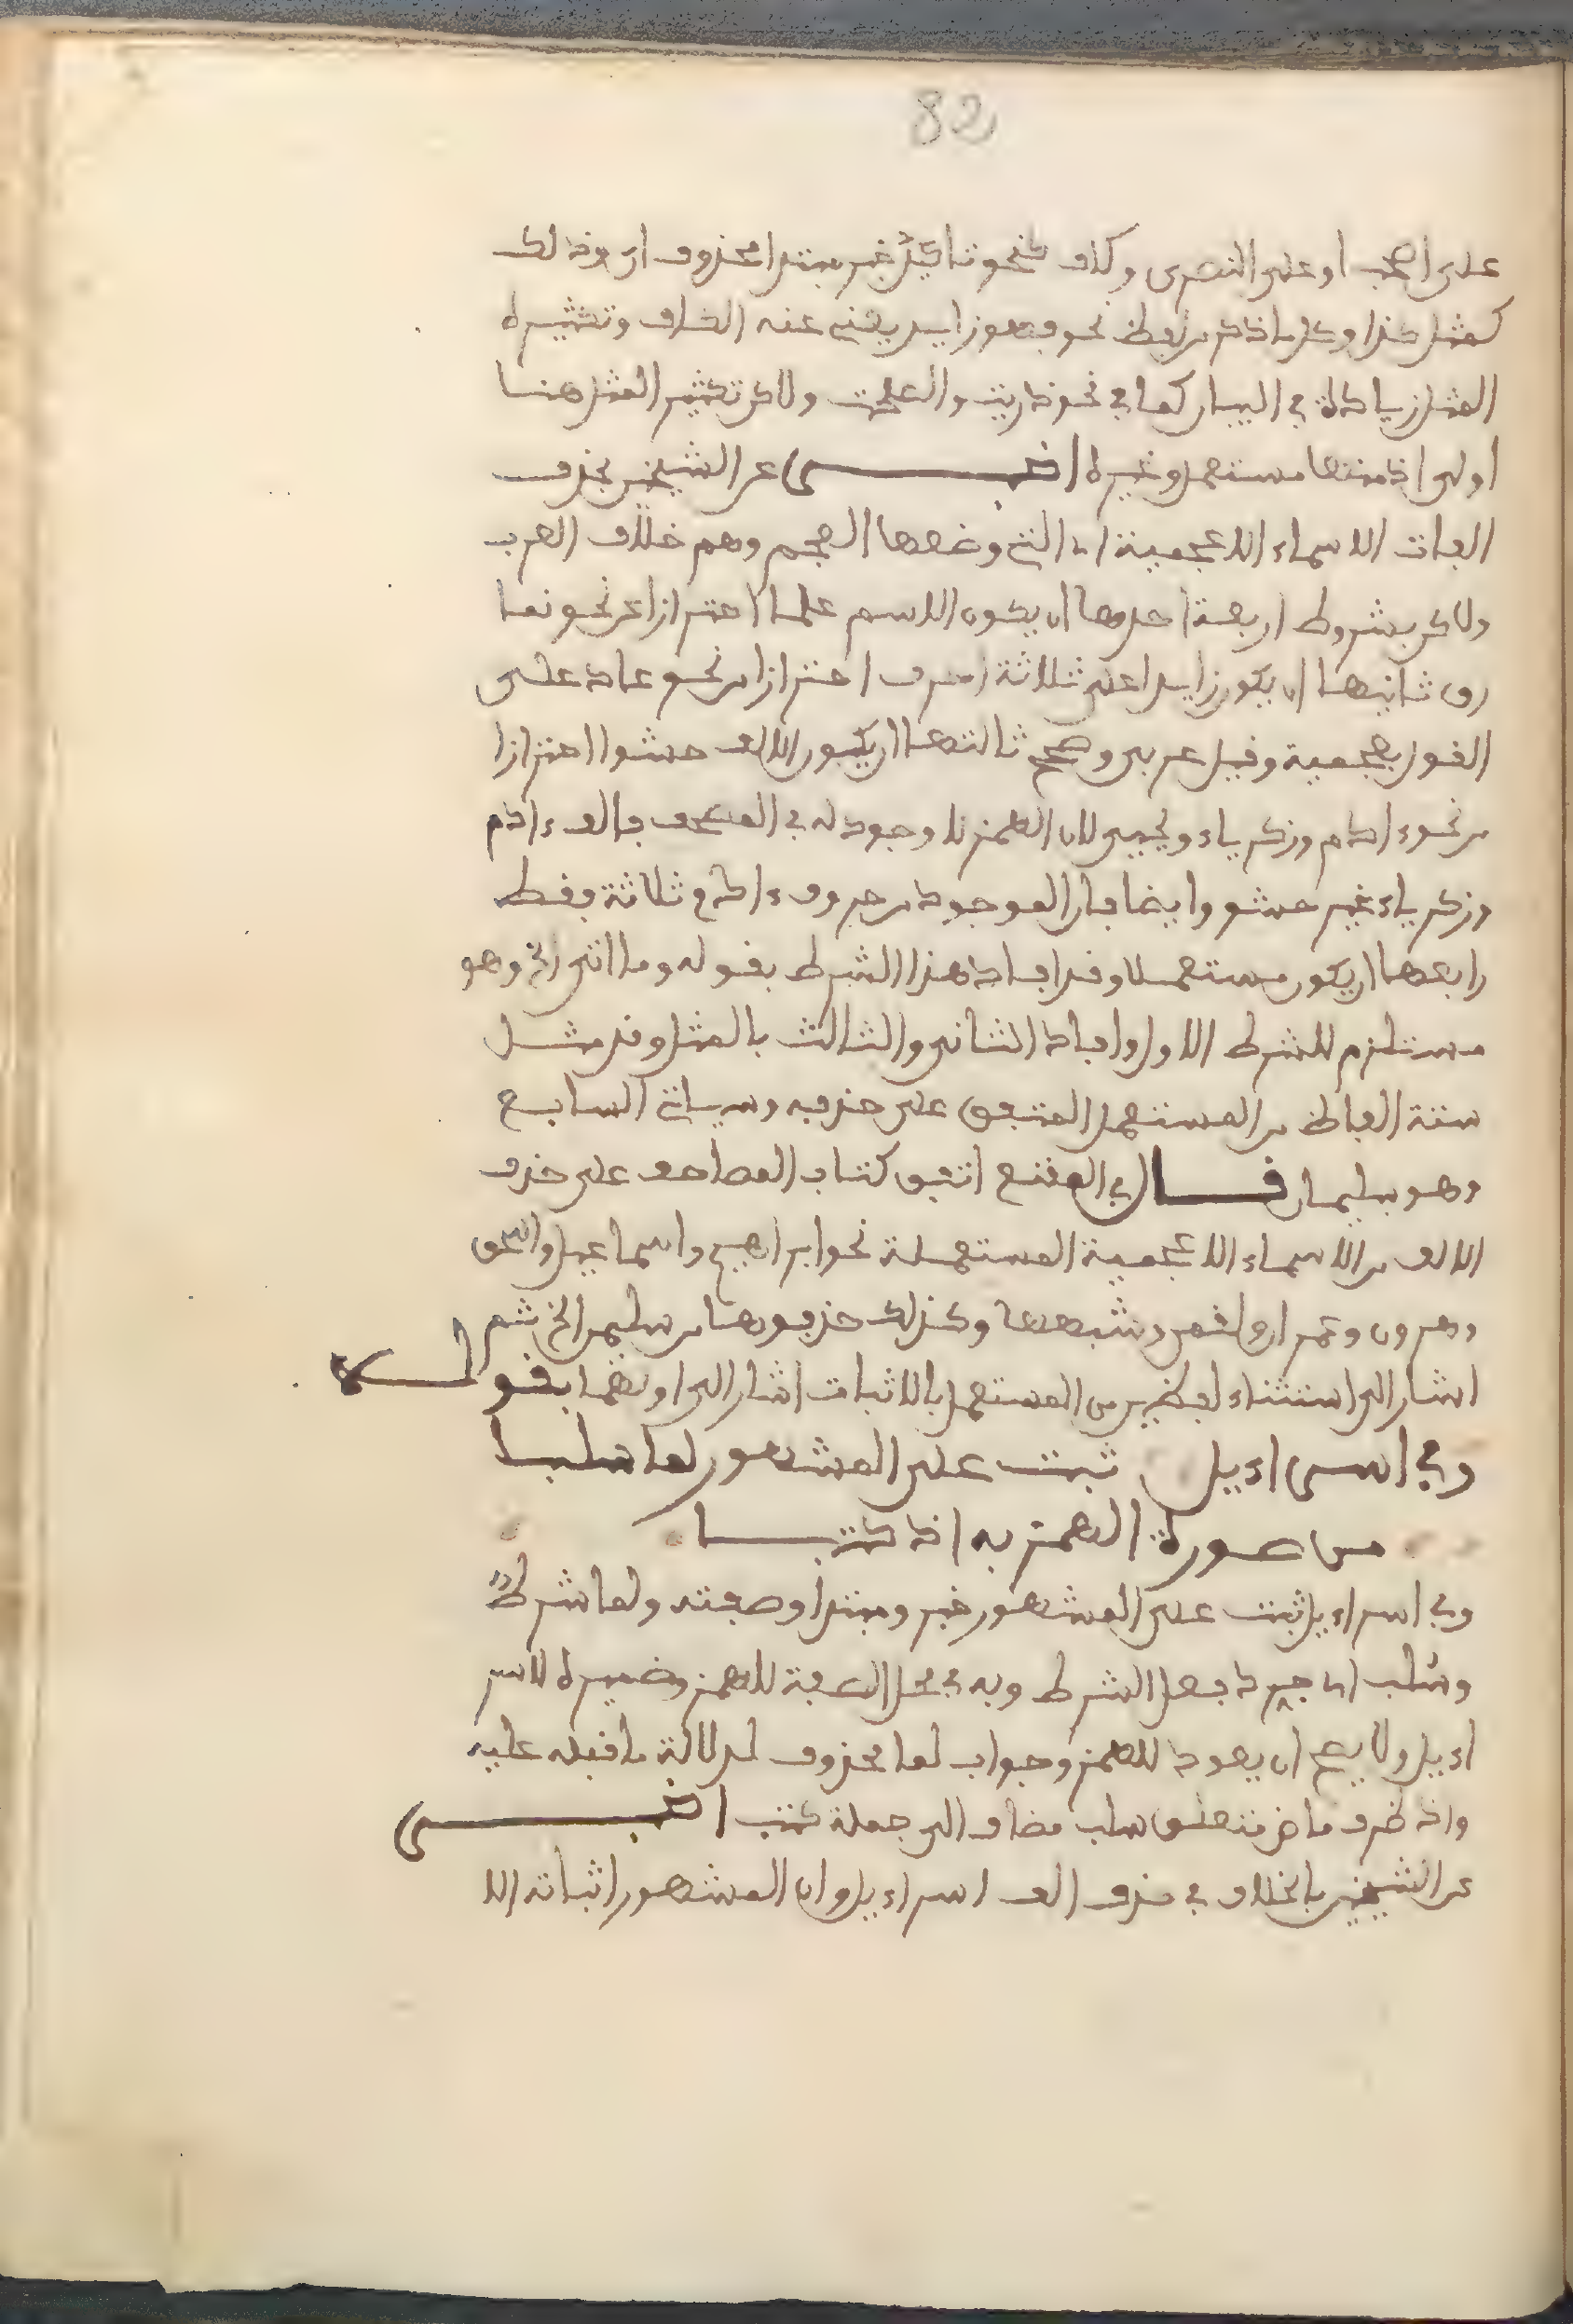 82
على اصحب او على النصرى وكاف كنحو تاكيد خبر مبتدا محذوف اي وذلك
كمثل كذا وكل ما ذكر من لفظ نحو فهو زايد يغني عنه الكاف وتكثيره
المثل زيادة في البيان كما في نحو ذريت والعلمت ولاكن تكثير المثل هنا
اولى اذ منها مستعمل وغيره اخبـــر عن الشيخين بحذف
الفات الاسماء الاعجمية اي التي وضعها العجم وهم خلاف العرب
ولاكن بشروط اربعة احدها ان يكون الاسم علما احترازا عن نحو نما
رق ثانيها ان يكون زايدا على ثلاثة احرف احترازا من نحو عاد على
القول بعجميته وقيل عربي وصحح ثالثها ان يكون الالف حشوا احترازا
من نحو ءادم وزكرياء ويحيى لان الهمز لا وجود له في المصحف فالف ءادم
وزكرياء غير حشو وايضا فان الموجود من حروف ءادم ثلاثة فقط
رابعها ان يكون مستعملا وقد افاد هذا الشرط بقوله وما اتى الخ وهو
مستلزم للشرط الاول وافاد الثاني والثالث بالمثل وقد مثل
ستة الفاظ من المستعمل المتفق على حذفه وسياتي السابع
وهو سليمان قـــال في المقنع اتفق كتاب المصاحف على حذف
الالف من الاسماء الاعجمية المستعملة نحو ابراهيم واسماعيل واسحق
وهرون وعمران ولقمن وشبهها وكذلك حذفوها من سليمن الخ ثم
اشار الى استثناء لفظين من المستعمل بالاثبات اشار الى اولهما بقولـــه
وفي اسراءيل ثبت على المشهور لما سلبا
من صورة الهمز به اذ كتبـــا
وفي اسراءيل ثبت على المشهور خبر ومبتدا وصفته ولما شرط
وسلب اي جرد فعل الشرط وبه في محل الصفة للهمز وضميره لاسر
اءيل ولا يصح ان يعود للهمز وجواب لما محذوف لدلالة ما قبله عليه
واذ ظرف ماض متعلق سلب مضاف الى جملة كتب اخبـــر
عن الشيخين بالخلاف في حذف الف اسراءيل وان المشهور اثباته الا